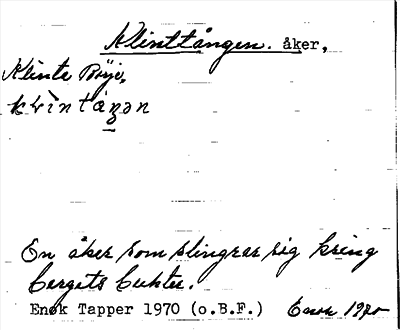 Klinttången. åker,
Klinte Böja,
En åker som slingrar sig kring
bergets bukter.
Enok Tapper 1970 (o.B.F.) Enok 1970